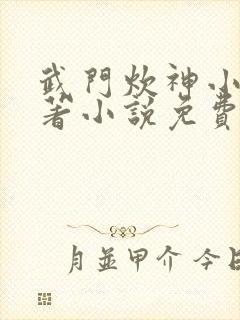 武門炊神小
著小說免費
月並甲介 今日